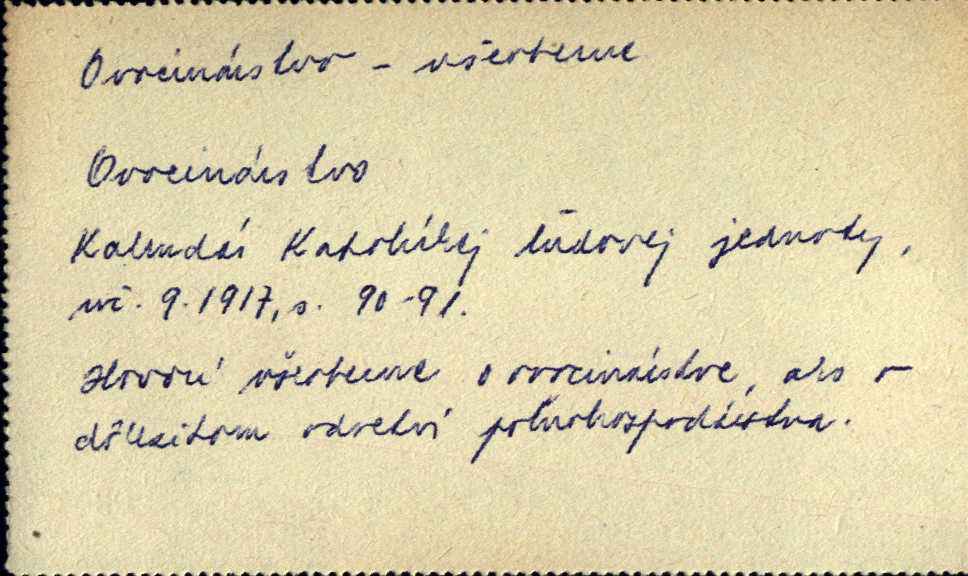 Ovocinárstvo - všeobecne
Ovocinárstvo
Kalendár Katolíckej ľudovej jednoty,
roč. 9. 1917, s. 90-91.
Hovorí všeobecne o ovocinárstve, ako o
dôležitom odvetví poľnohospodárstva.